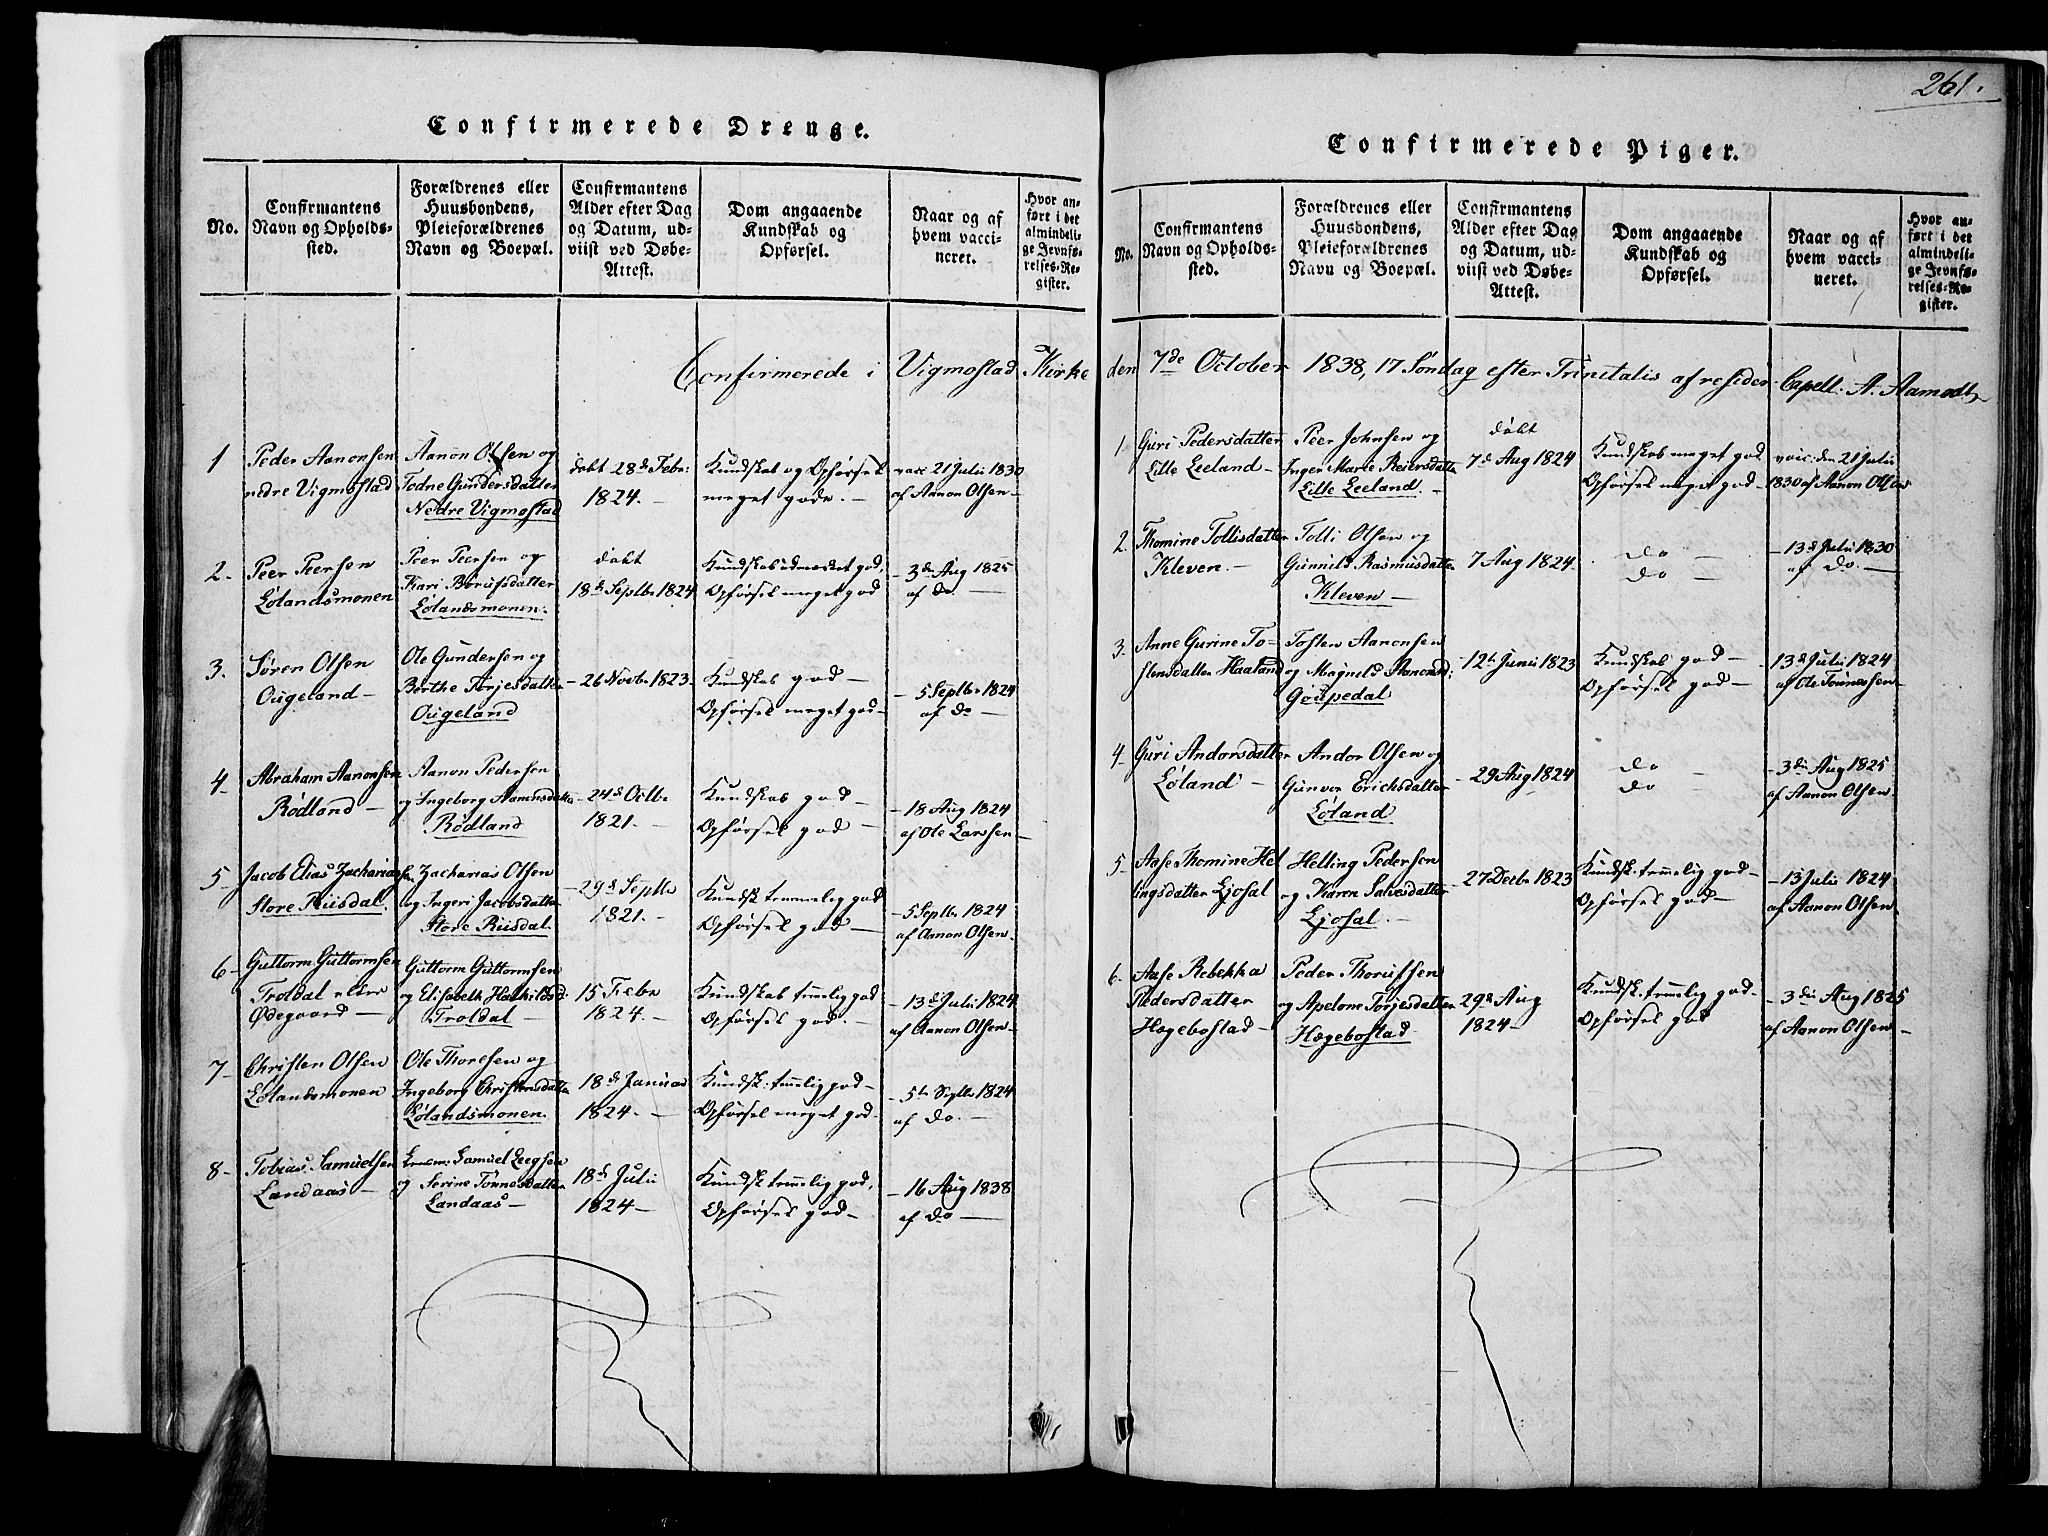 261.
Confirmerede Drenge.
No.
Confirmantens
Navn og Opholds-
sted.
Forældrenes eller
Huusbondens,
Pleieforældrenes
Navn og Boepæl.
Confirmantens
Alder efter Dag
og Datum, ud-
viist ved Døbe-
Attest.
Dom angaaende
Kundskab og
Opførsel.
Naar og af
hvem vacci-
neret.
Hvor an-
ført i det
almindeli-
ge Jevnfø-
relses-Re-
gister.
Confirmerede i Vigmostad Kirke
1 Peder Aanonsen
nedre Vigmostad
Aanon Olsen og
Todne Gundersdatter
Nedre Vigmostad
døbt 28de Febr:
1824. -
Kundskab og Opførsel
meget gode. -
vacc 21 Julii 1830
af Aanon Olsen -
2. Peer Peersen
Lølandsmonen
Peer Peersen og
Kari Berulfsdatter
Lølandsmonen.
døbt
18de Septbr 1824
Kundskab udmærket god,
Opførsel meget god
- 3die Aug 1825
af do -
3. Søren Olsen
Ougeland -
Ole Gundersen og
Berthe Torjesdatter
Ougeland
- 26 Novbr 1823 -
Kundskab god -
Opførsel meget god -
- 5 Septbr 1824
af do -
4 - Abraham Aanonsen
Rødland -
Aanon Pedersen
og Ingeborg Aamundsdatter
Rødland
- 24de Octbr
1821. -
Kundskab god -
Opførsel god -
- 18 Aug 1824
af Ole Larsen -
5 - Jacob Elias Zachariassen
Store Riisdal.
Zacharias Olsen
og Ingeri Jacobsdatter
Store Riisdal.
- 29de Septbr
1821. -
Kundsk temmelig god
Opførsel god -
- 5 Septbr 1824
af Aanon Olsen.
6 - Guttorm Guttormsen
Troldal eller
Ødegaard -
Guttorm Guttormsen
og Elisabeth Hathildsd:
Troldal -
15 Febr
1824. -
Kundskab temmelig god
Opførsel god. -
- 13de Julii 1824
af Aanon Olsen -
7 - Christen Olsen
Lølandsmonen
Ole Thoresen og
Ingeborg Christensdatter
Lølandsmonen.
18de Januar
1824. -
Kundsk: temmelig god -
Opførsel meget god.
- 5te Septbr 1824
af do. -
8 - Tobias Samuelsen
Landaas -
Samuel
og Serine Tønnesdatter
Landaas -
18de Julii
1824 -
Kundsk temmelig god,
Opførsel god -
- 16 Aug 1838
af do -
Confirmerede Piger.
No.
Confirmantens
Navn og Opholds-
sted.
Forældrenes eller
Huusbondens,
Pleieforældrenes
Navn og Boepæl.
Confirmantens
Alder efter Dag
og Datum, ud-
viist ved Døbe-
Attest.
Dom angaaende
Kundskab og
Opførsel.
Naar og af
hvem vacci-
neret.
Hvor an-
ført i det
almindeli-
ge Jevnfø-
relses-Re-
gister.
den 7de October 1838, 17 Søndag efter Trinitatis af resider. Capell. A. Aamodt
1. Guri Pedersdatter
Lille Leeland -
Peer Johnsen og
Inger Marie Reiersdatter
Lille Leeland. -
døbt
7de Aug 1824
Kundskab meget god
Opførsel meget god -
vacc. den 21 Julii
1830 af Aanon Olsen
2. Thomine Tollisdatter
Kleven. -
Tolli Olsen og
Gunnild Rasmusdatter
Kleven -
7 Aug 1824.
do -
do -
- 13de Julii 1830
af do. -
3. Anne Gurine To-
stensdatter Haaland
Tosten Aanonsen
og Magnild Aanonsd:
Goupedal
- 12te Junii 1823
Kundskab god -
Opførsel god -
- 13de Julii 1824
af Ole Tønnessen -
4. Guri Andorsdatter
Løland -
Andor Olsen og
Gunvor Erichsdatter
Løland
- 29 Aug 1824
do -
do -
- 3die Aug 1825
af Aanon Olsen.
5. Aase Thomine Hel
lingsdatter Ljosal
Helling Pedersen
og Karen Salvesdatter
Ljosal. -
- 27 Decbr 1823
Kundsk. temmelig god -
Opførsel god -
- 13 Julii 1824
af Aanon Olsen -
6. Aase Rebekka
Pedersdatter
Hægebostad -
Peder Thorulfsen
og Apelone Torjesdatter
Hægebostad
29de Aug
1824 -
Kundsk. temmelig god -
Opførsel god
- 3die Aug 1825
af Aanon Olsen -